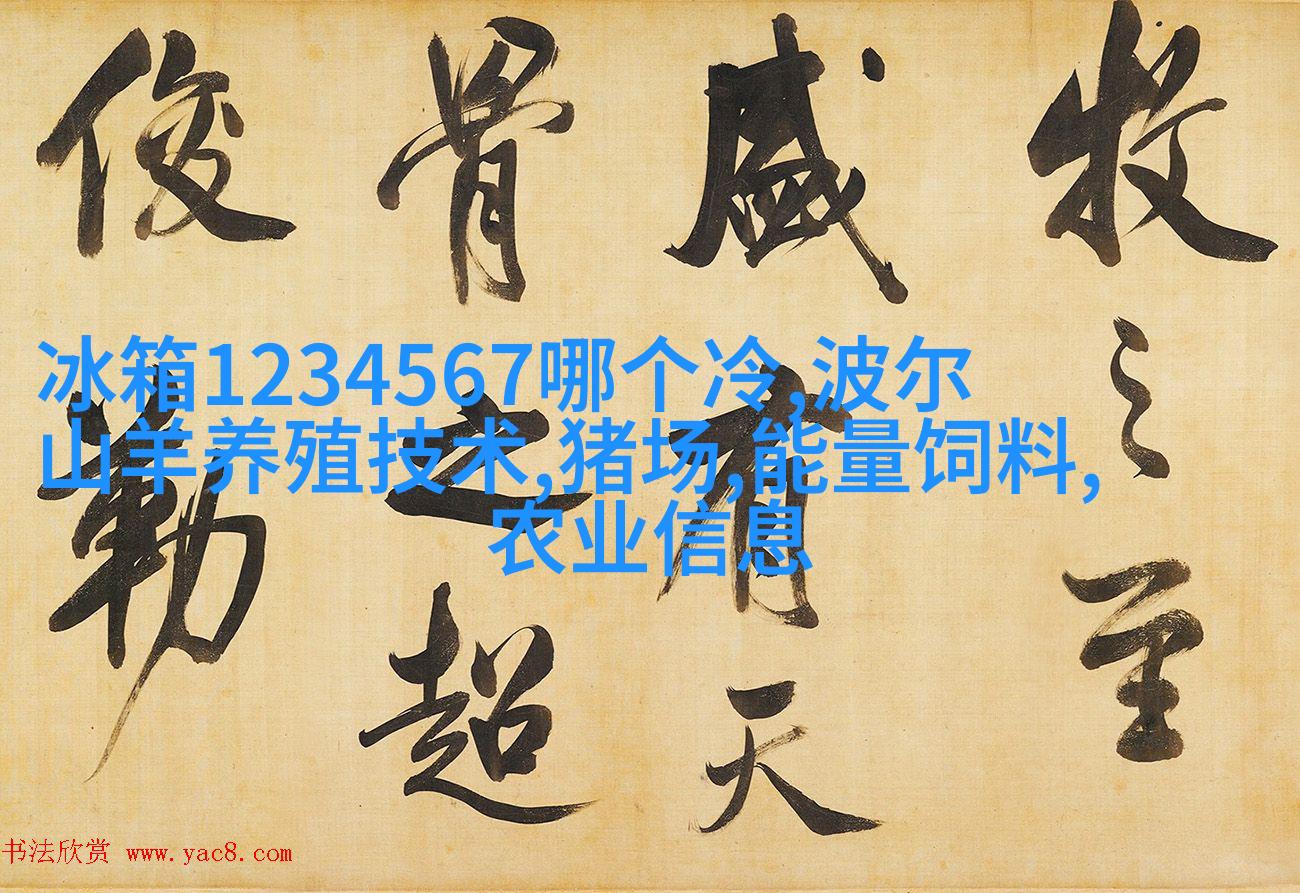 牧之至
盛有天
骨之超
俊勒
冰箱1234567哪个冷,波尔
山羊养殖技术,猪场,能量饲料,
农业信息
书法欣赏 www.yac8.com